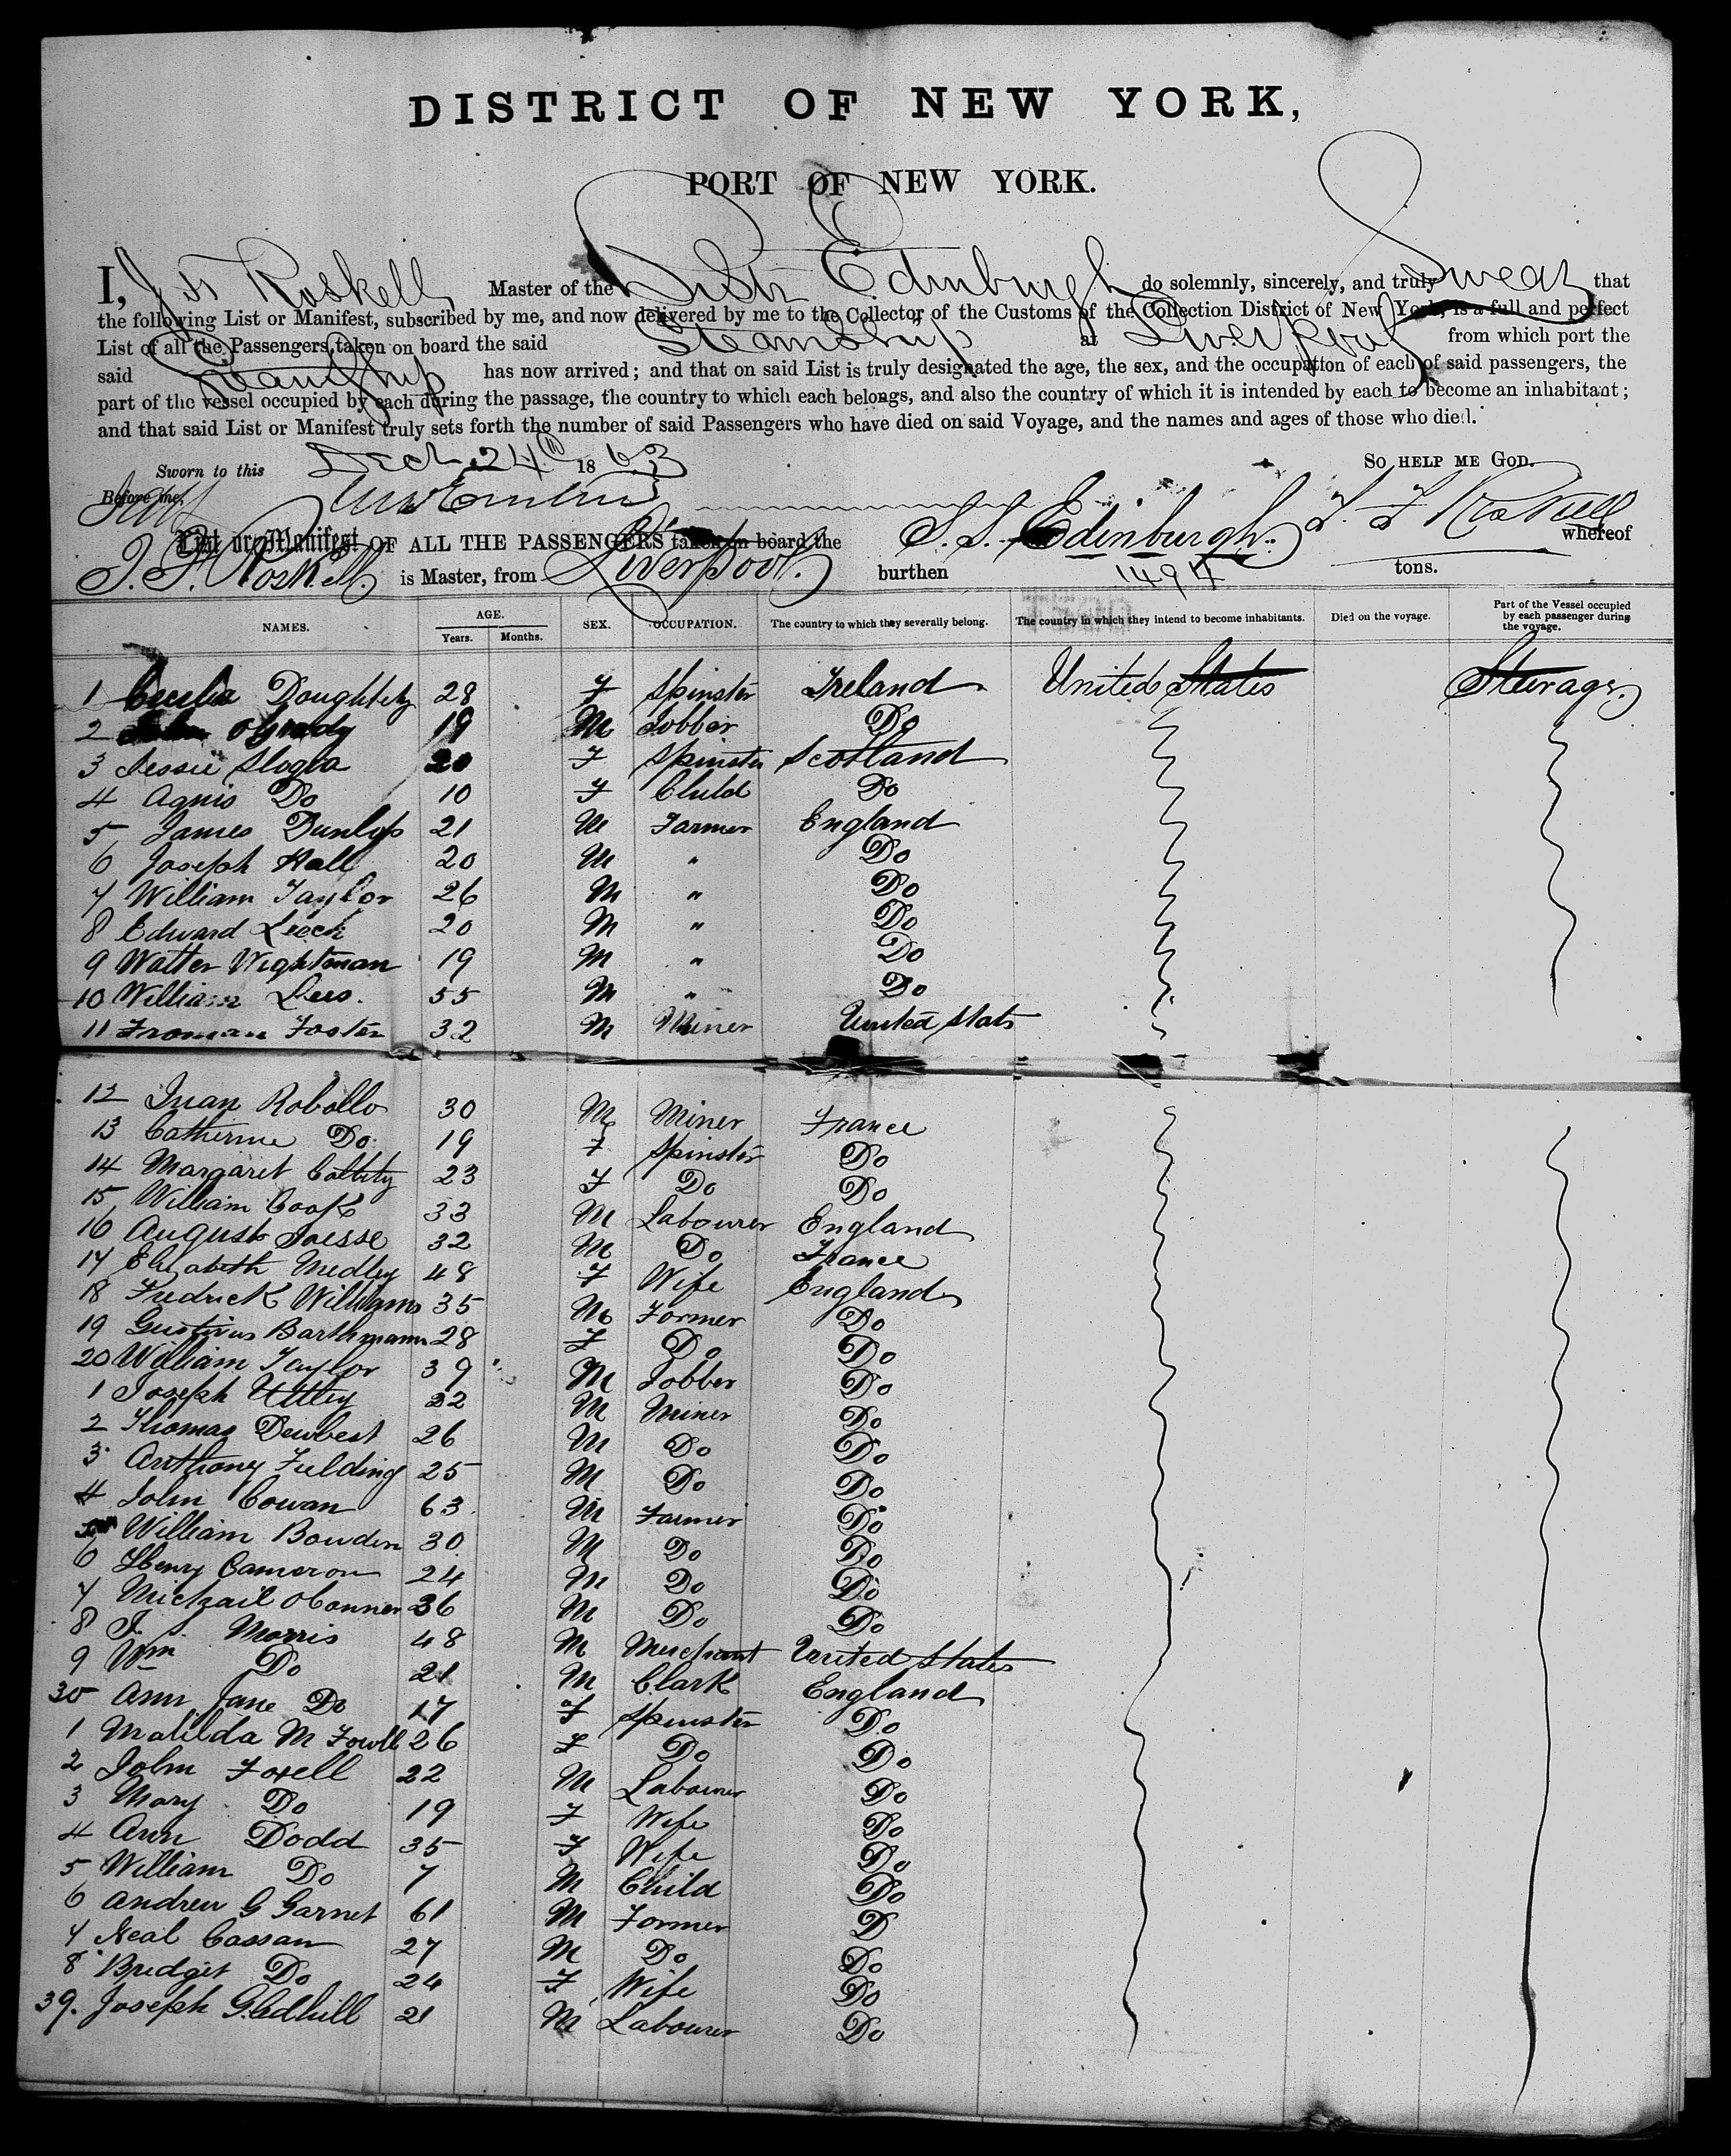 DISTRICT OF NEW YORK,
PORT OF NEW YORK.
I, Roskell Master of the Br Str Edinburgh do solemnly, sincerely, and truly Swear that
the following List or Manifest, subscribed by me, and now delivered by me to the Collector of the Customs of the Collection District of New York, is a full and perfect
List of all the Passengers taken on board the said Steamship at Liverpool from which port the
said Steamship has now arrived; and that on said List is truly designated the age, the sex, and the occupation of each of said passengers, the
part of the vessel occupied by each during the passage, the country to which each belongs, and also the country of which it is intended by each to become an inhabitant;
and that said List or Manifest truly sets forth the number of said Passengers who have died on said Voyage, and the names and ages of those who died.
Sworn to this Decr 24th 1863 SO HELP ME GOD.
Before me,
List or Manifest OF ALL THE PASSENGERS taken on board the S.S. Edinburgh. whereof
J. F. Roskell is Master, from Liverpool. burthen 1494 tons.
NAMES. AGE. Years. Months. SEX. OCCUPATION. The country to which they severally belong. The country in which they intend to become inhabitants. Died on the voyage. Part of the Vessel occupied by each passenger during the voyage.
1 Cecelia Doughtety 28 F Spinster Ireland United States Steerage.
2 John OGrady 19 M Jobber Do
3 Jessie Slogva 20 F Spinster Scotland
4 Agnis Do 10 F Child Do
5 James Dunlop 21 M Farmer England
6 Joseph Hall 20 M " Do
7 William Taylor 26 M " Do
8 Edward Leech 20 M " Do
9 Walter Wightman 19 M " Do
10 William Lees. 55 M " Do
11 Froman Foster 32 M Miner United Stats
12 Juan Robollo 30 M Miner France
13 Catherine Do 19 F Spinster Do
14 Margaret 23 F Do Do
15 William Cook 33 M Labourer England
16 August Joesse 32 M Do France
17 Elizabeth Medley 48 F Wife England
18 Fredrick Williams 35 M Former Do
19 Gustivus Barthmann 28 F Do Do
20 William Taylor 39 M Jobber Do
1 Joseph Uttley 22 M Miner Do
2 Thomas Dewbest 26 M Do Do
3 Anthony Fielding 25 M Do Do
4 John Cowan 63 M Farmer Do
5 William Bowden 30 M Do Do
6 Henry Cameron 24 M Do Do
7 Michail OConner 36 M Do Do
8 J. S. Morris 48 M Merchant United States
9 Wm Do 21 M Clark England
30 Ann Jane Do 17 F Spinster Do
1 Matilda M Fowll 26 F Do Do
2 John Foxell 22 M Labourer Do
3 Mary Do 19 F Wife Do
4 Ann Dodd 35 F Wife Do
5 William Do 7 M Child Do
6 Andrew G Garnet 61 M Former D
7 Neal Cassan 27 M Do Do
8 Bridget Do 24 F Wife Do
39. Joseph Gledhill 21 M Labourer Do